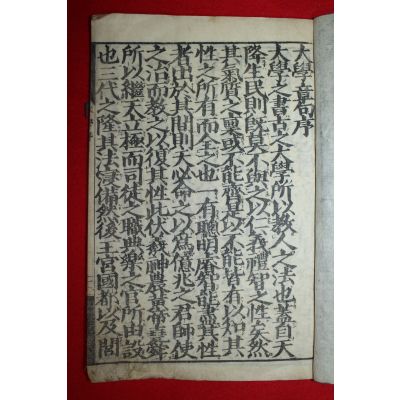 大學章句序
大學之書古之大學所以教人之法也蓋自天
降生民則既莫不與之以仁義禮智之性矣然
其氣質之稟或不能齊是以不能皆有以知其
性之所有而全之也一有聰明睿智能盡其性
者出於其間則天必命之以爲億兆之君師使
之治而教之以復其性此伏羲神農黃帝堯舜
所以繼天立極而司徒之職典樂之官所由設
也三代之隆其法寖備然後王宮國都以及閭